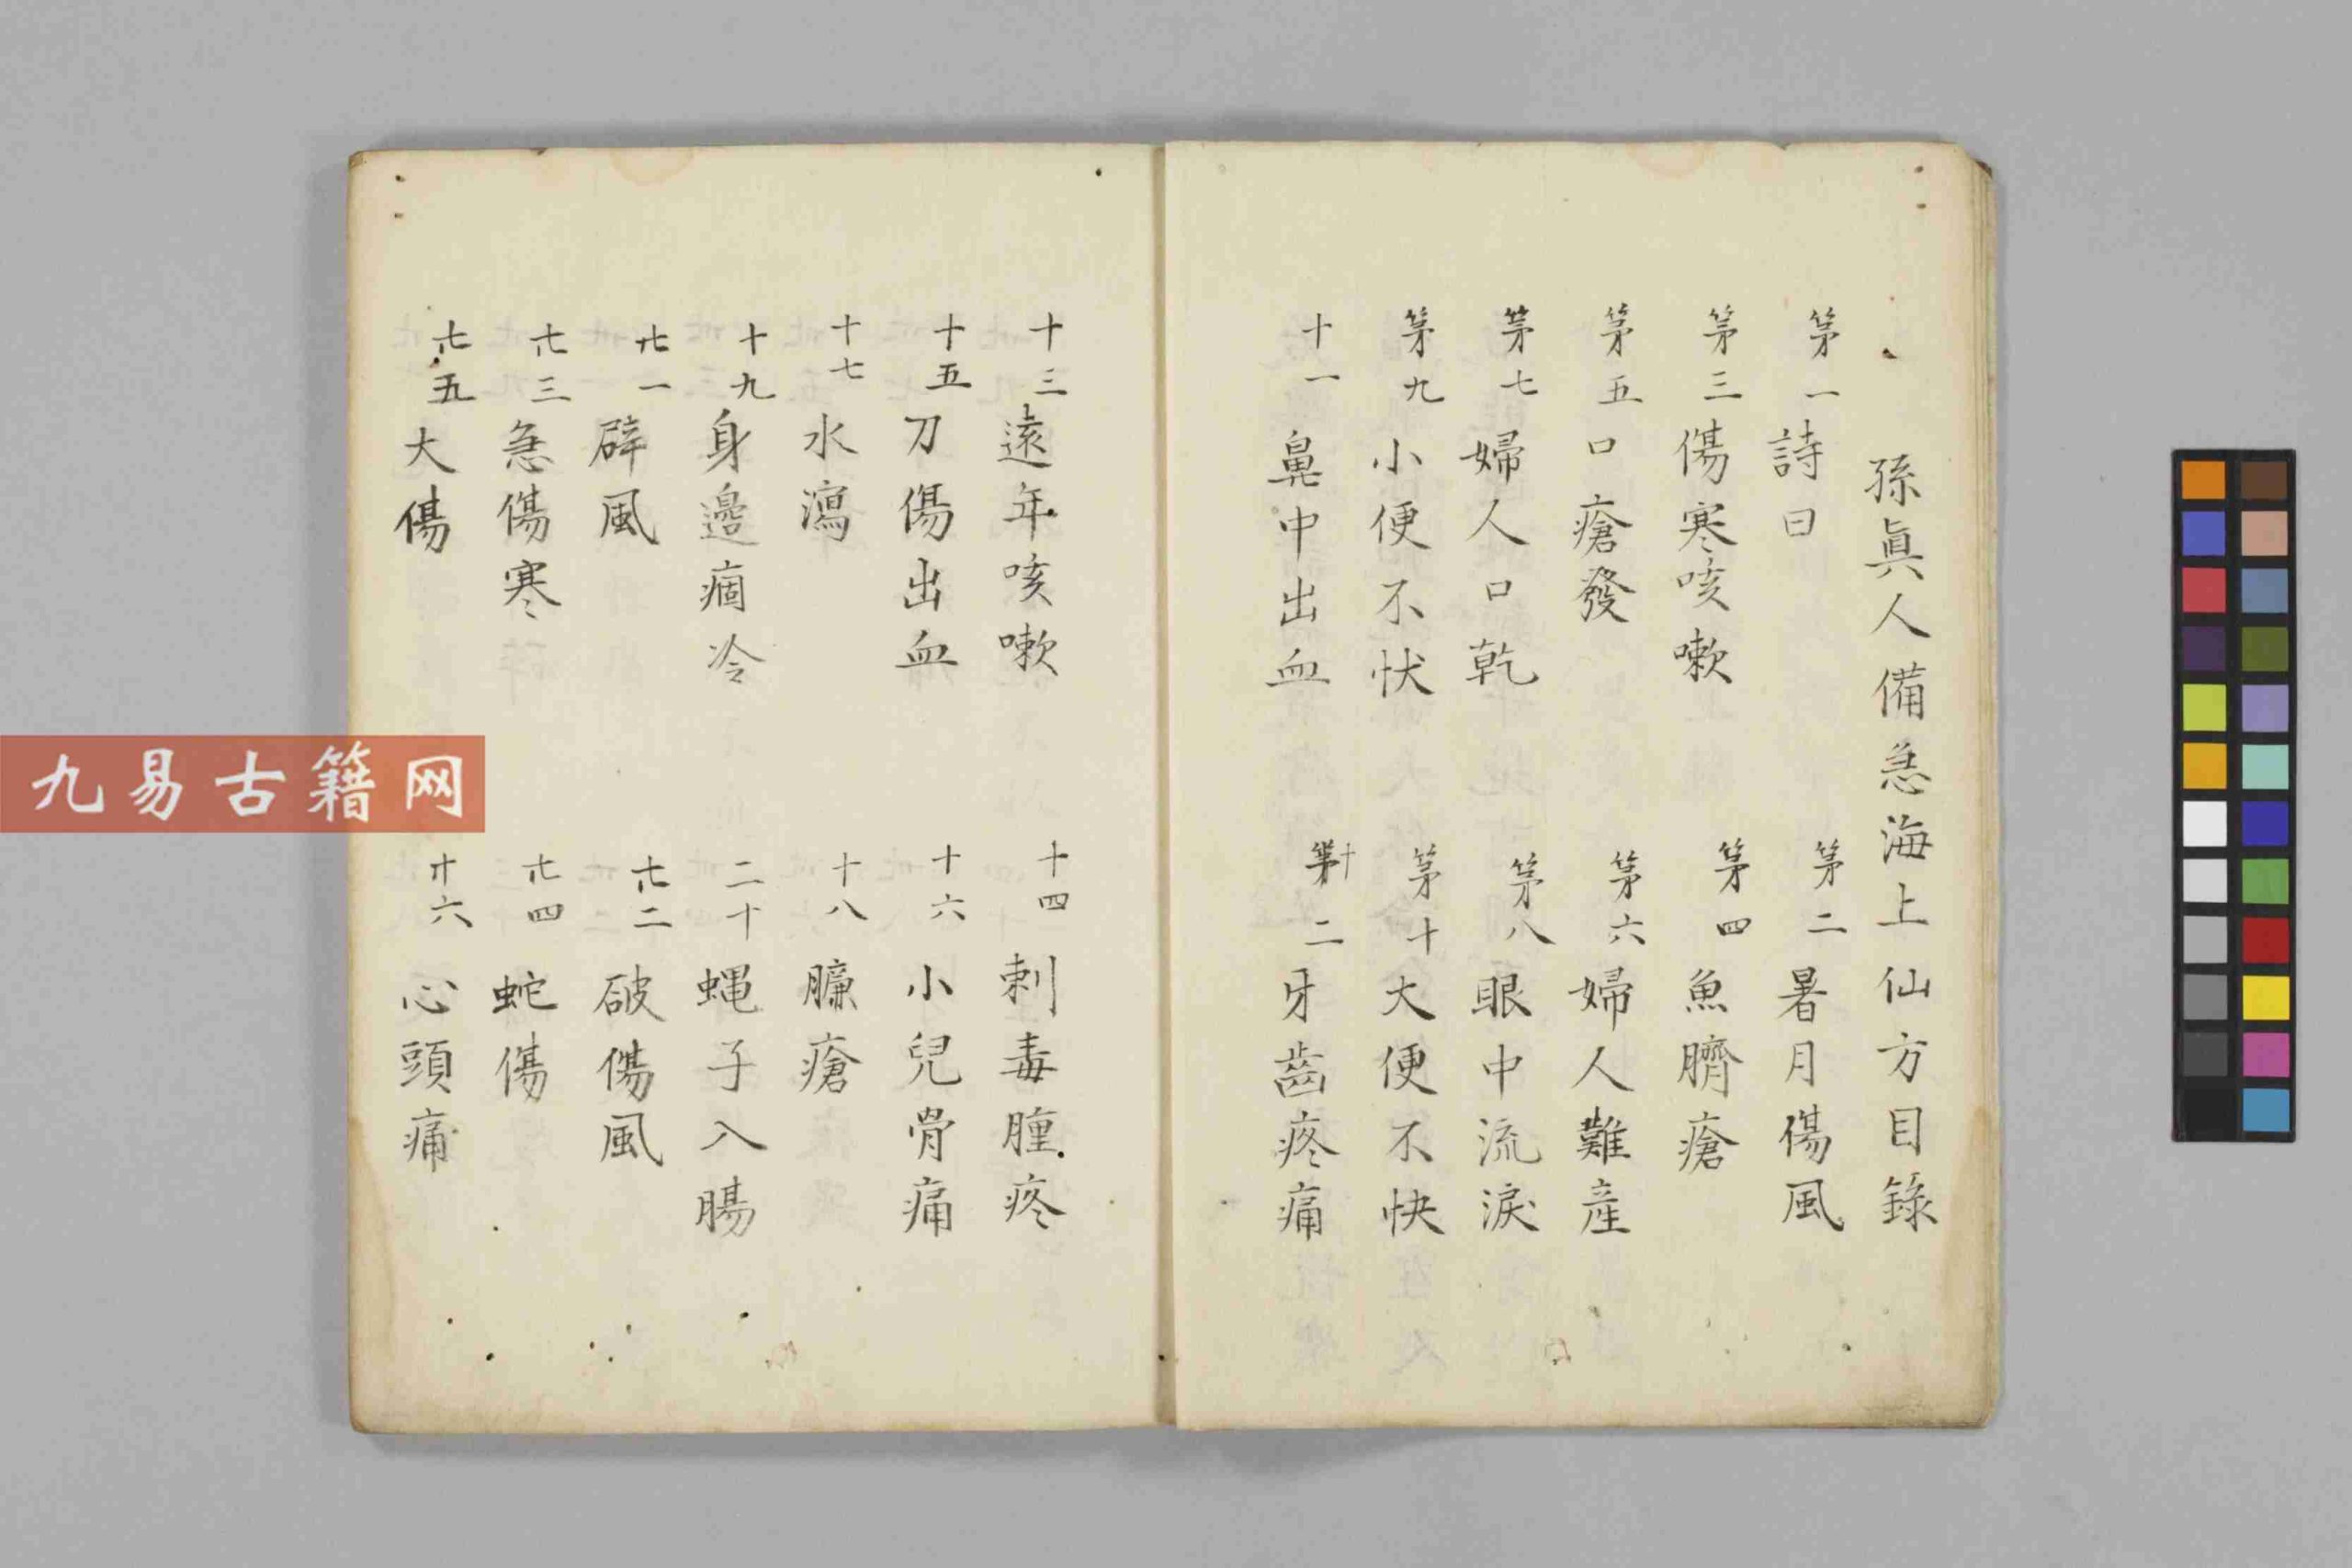 孫眞人備急海上仙方目錄
第一詩曰
第二暑月傷風
第三傷寒咳嗽
第四魚臍瘡
第五口瘡發
第六婦人難產
第七婦人口乾
第八眼中流淚
第九小便不伏
第十大便不快
十一鼻中出血
十二牙齒疼痛
十三遠年咳嗽
十四刺毒腫疼
十五刀傷出血
十六小兒骨痛
十七水瀉
十八臁瘡
十九身邊痼冷
二十蝇子入腸
廿一癖風
廿二破傷風
廿三急傷寒
廿四蛇傷
廿五大傷
廿六心頭痛
九易古籍网